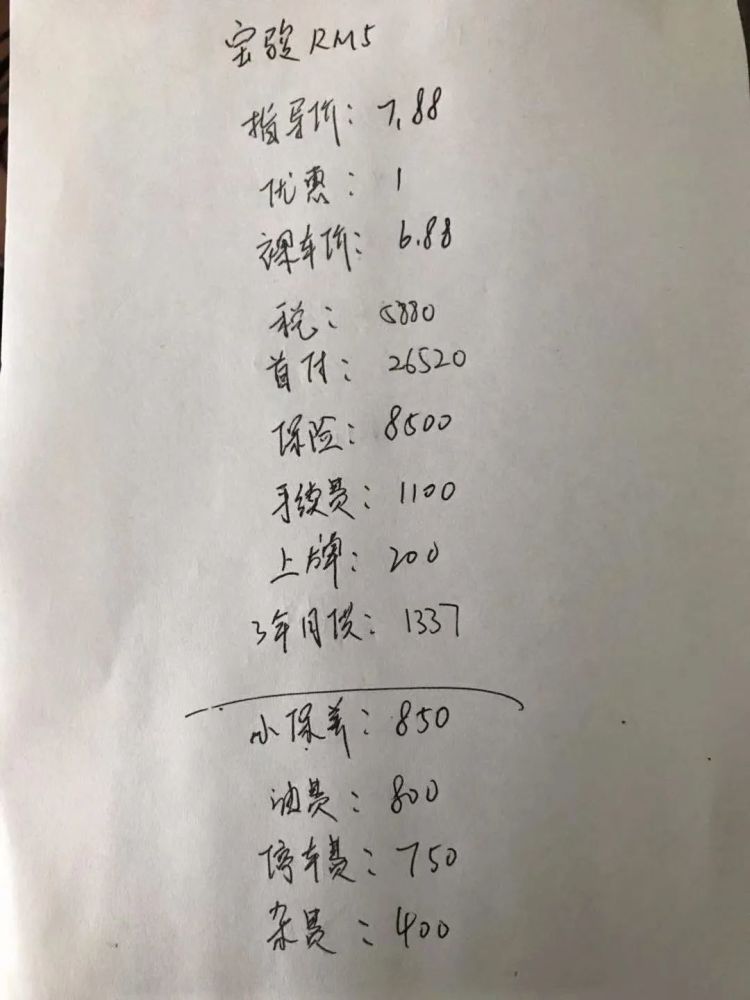 宝骏 RM5
指导价: 7.88
优惠: 1
裸车价: 6.88
税: 5880
首付: 26520
保险: 8500
手续费: 1100
上牌: 200
3年月供: 1337
小保养: 850
油费: 800
停车费: 750
杂费: 400